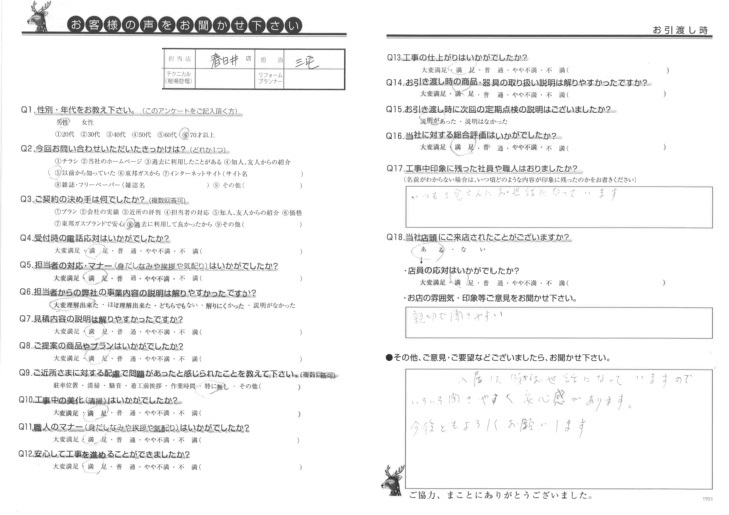 お客様の声をお聞かせ下さい
担当店 春日井 店 担当 三宅
テクニカル(現場管理) リフォームプランナー
Q1.性別・年代をお教え下さい。(このアンケートをご記入頂く方)
男性 女性
①20代 ②30代 ③40代 ④50代 ⑤60代 ⑥70才以上
Q2.今回お問い合わせいただいたきっかけは?(どれか1つ)
①チラシ ②当社のホームページ ③過去に利用したことがある ④知人、友人からの紹介
⑤以前から知っていた ⑥東邦ガスから ⑦インターネットサイト(サイト名 )
⑧雑誌・フリーペーパー(雑誌名 ) ⑨その他( )
Q3.ご契約の決め手は何でしたか?(複数回答可)
①プラン ②会社の実績 ③近所の評判 ④担当者の対応 ⑤知人、友人からの紹介 ⑥価格
⑦東邦ガスブランドで安心 ⑧過去に利用して良かったから ⑨その他( )
Q4.受付時の電話応対はいかがでしたか?
大変満足・満足・普通・やや不満・不満( )
Q5.担当者の対応・マナー(身だしなみや挨拶や気配り)はいかがでしたか?
大変満足・満足・普通・やや不満・不満( )
Q6.担当者からの弊社の事業内容の説明は解りやすかったですか?
大変理解出来た・ほぼ理解出来た・どちらでもない・解りにくかった・説明がなかった
Q7.見積内容の説明は解りやすかったですか?
大変満足・満足・普通・やや不満・不満( )
Q8.ご提案の商品やプランはいかがでしたか?
大変満足・満足・普通・やや不満・不満( )
Q9.ご近所さまに対する配慮で問題があったと感じられたことを教えて下さい。(複数回答可)
駐車位置・清掃・騒音・着工前挨拶・作業時間・特に無し・その他( )
Q10.工事中の美化(清掃)はいかがでしたか?
大変満足・満足・普通・やや不満・不満( )
Q11.職人のマナー(身だしなみや挨拶や気配り)はいかがでしたか?
大変満足・満足・普通・やや不満・不満( )
Q12.安心して工事を進めることができましたか?
大変満足・満足・普通・やや不満・不満( )
お引渡し時
Q13.工事の仕上がりはいかがでしたか?
大変満足・満足・普通・やや不満・不満( )
Q14.お引き渡し時の商品・器具の取り扱い説明は解りやすかったですか?
大変満足・満足・普通・やや不満・不満( )
Q15.お引き渡し時に次回の定期点検の説明はございましたか?
説明があった・説明はなかった
Q16.当社に対する総合評価はいかがでしたか?
大変満足・満足・普通・やや不満・不満( )
Q17.工事中印象に残った社員や職人はおりましたか?
(名前がわからない場合は、いつ頃どのような内容が印象に残ったのかをお書きください)
いつも三宅さんにお世話になっています
Q18.当社店頭にご来店されたことがございますか?
ある・ない
・店員の応対はいかがでしたか?
大変満足・満足・普通・やや不満・不満( )
・お店の雰囲気・印象等ご意見をお聞かせ下さい。
親切で聞きやすい
●その他、ご意見・ご要望などございましたら、お聞かせ下さい。
世話になっていますので
いろいろ聞きやすく安心感があります。
今後ともよろしくお願いします
ご協力、まことにありがとうございました。